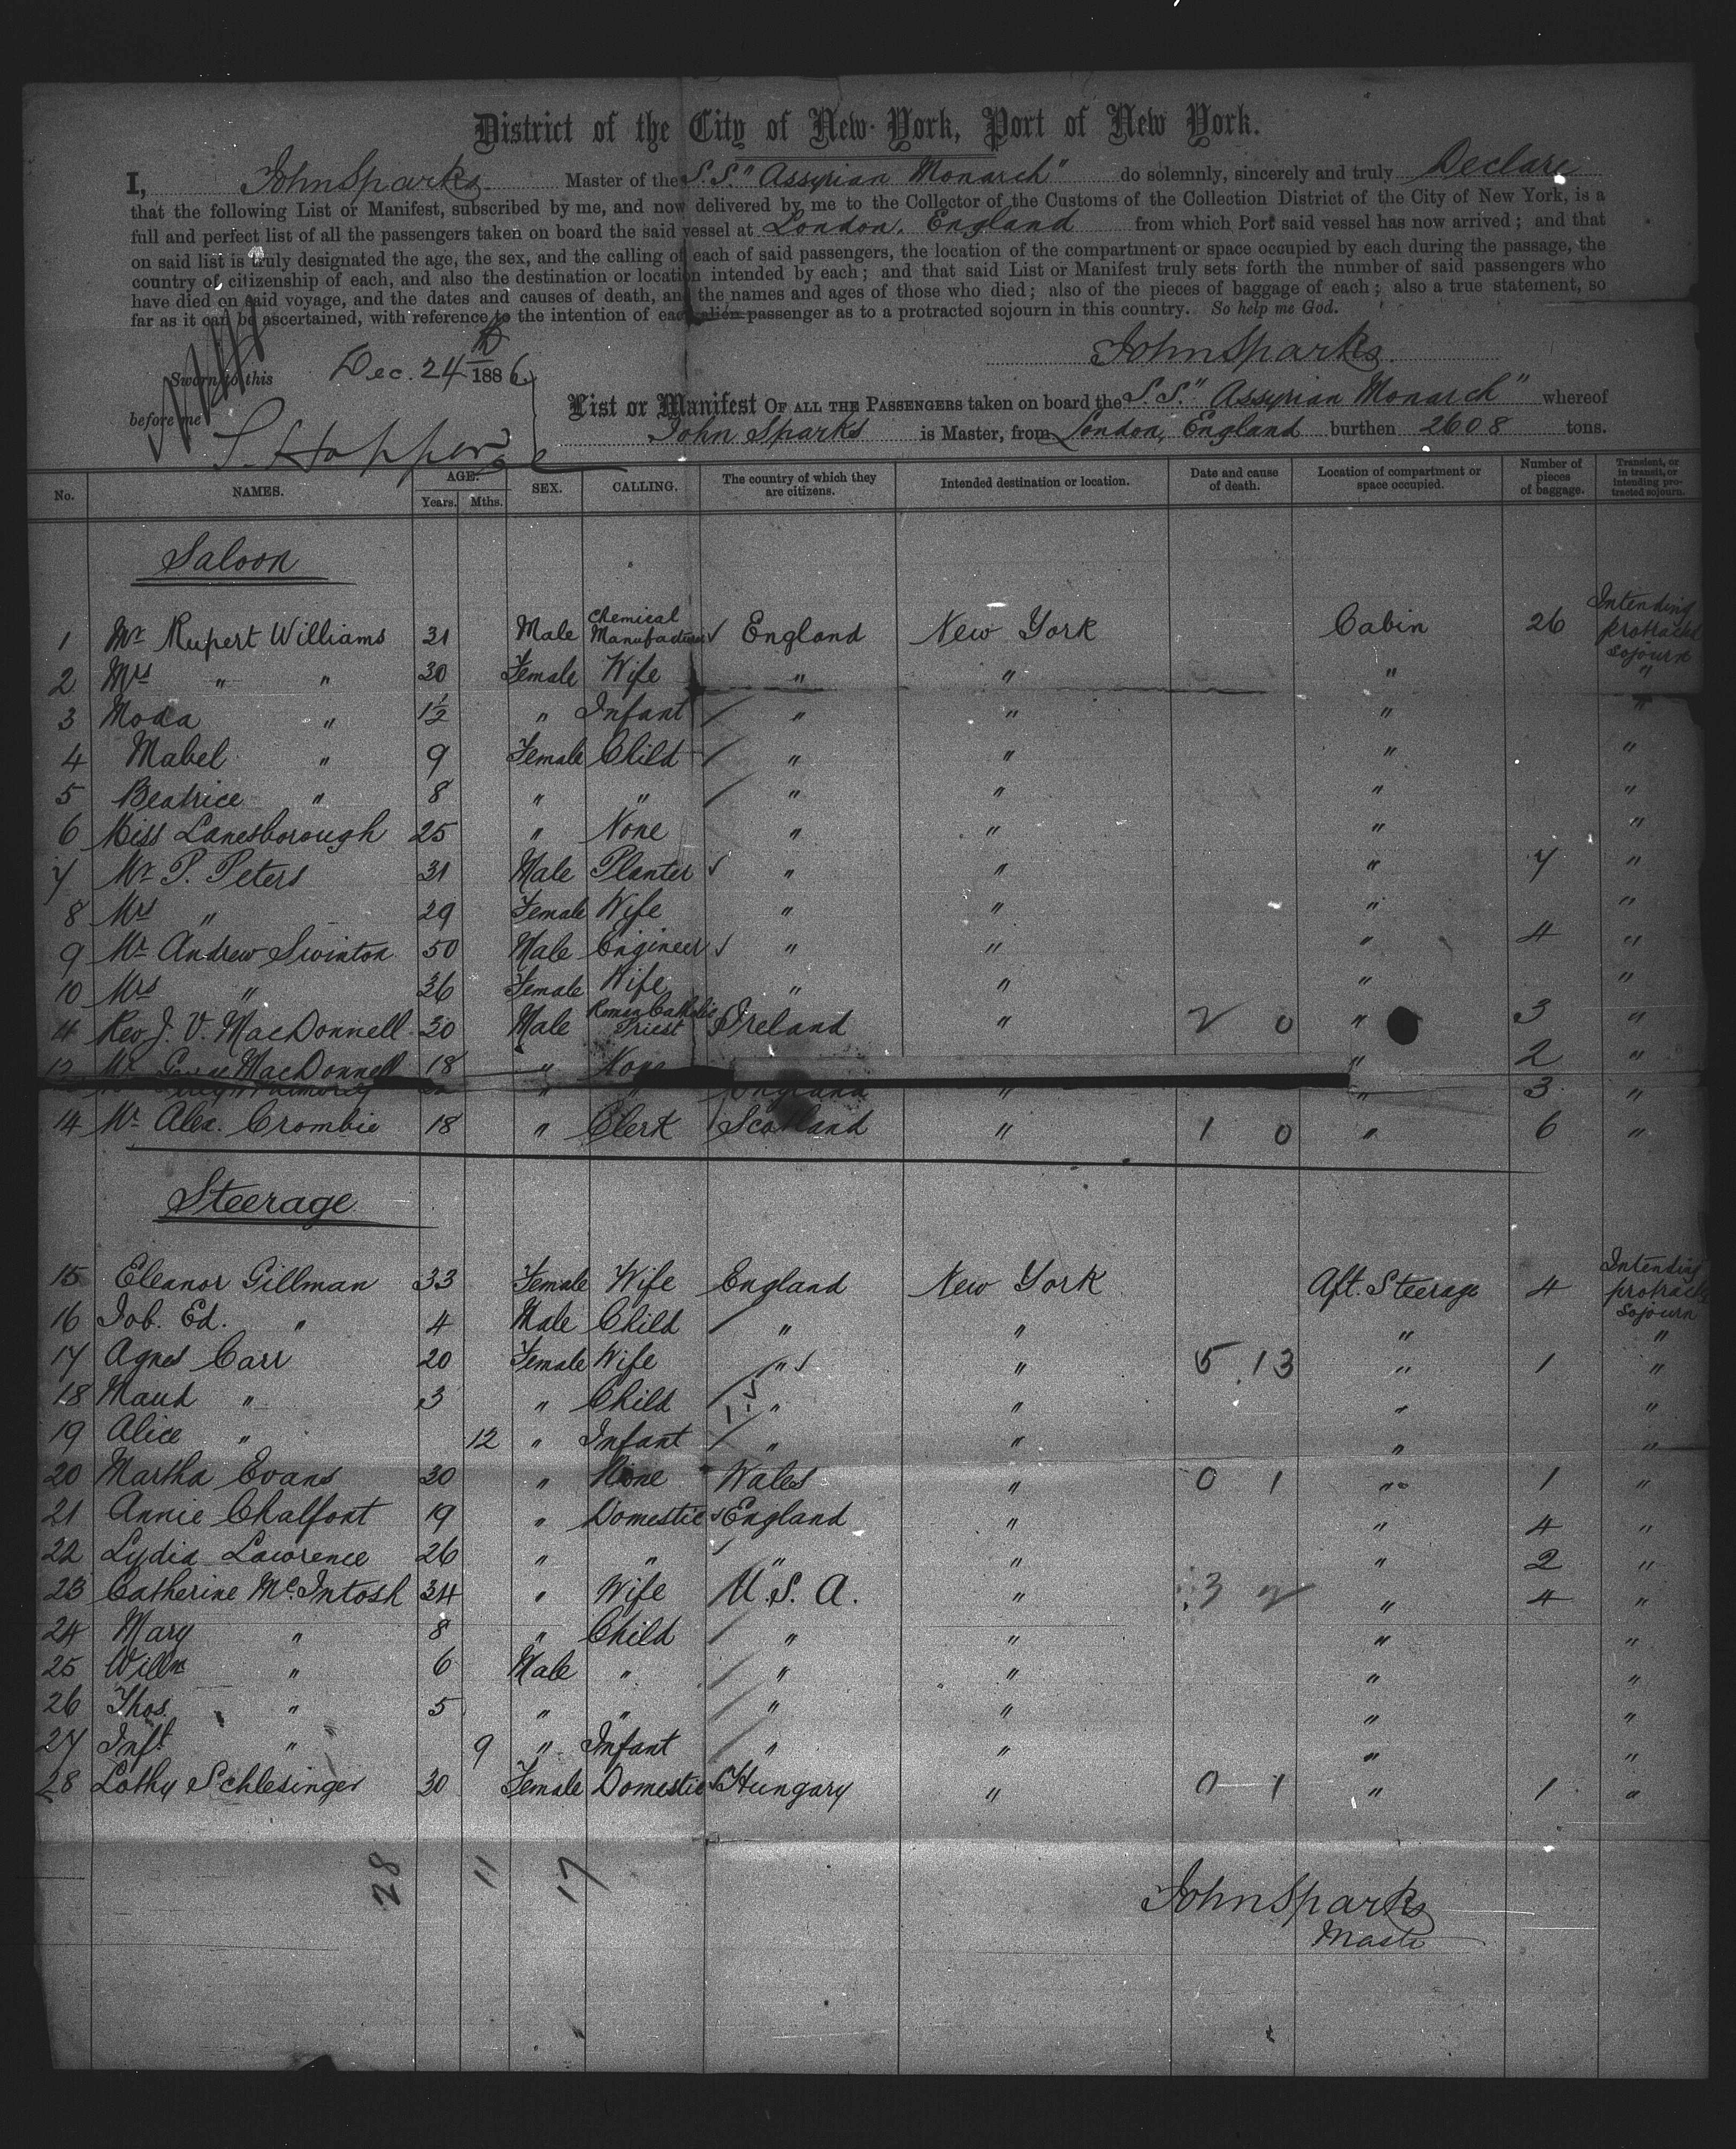 District of the City of New-York, Port of New York.
I, John Sparks Master of the S.S. "Assyrian Monarch" do solemnly, sincerely and truly Declare
that the following List or Manifest, subscribed by me, and now delivered by me to the Collector of the Customs of the Collection District of the City of New York, is a
full and perfect list of all the passengers taken on board the said vessel at London, England from which Port said vessel has now arrived; and that
on said list is truly designated the age, the sex, and the calling of each of said passengers, the location of the compartment or space occupied by each during the passage, the
country of citizenship of each, and also the destination or location intended by each; and that said List or Manifest truly sets forth the number of said passengers who
have died on said voyage, and the dates and causes of death, and the names and ages of those who died; also of the pieces of baggage of each; also a true statement, so
far as it can be ascertained, with reference to the intention of each alien passenger as to a protracted sojourn in this country. So help me God.
John Sparks
Sworn to this Dec. 24th 1886
before me
List or Manifest OF ALL THE PASSENGERS taken on board the S.S. "Assyrian Monarch" whereof
John Sparks is Master, from London, England burthen 2608 tons.
No. NAMES. AGE. Years. Mths. SEX. CALLING. The country of which they are citizens. Intended destination or location. Date and cause of death. Location of compartment or space occupied. Number of pieces of baggage. Transient, or in transit, or intending protracted sojourn.
Saloon
1 Mr Rupert Williams 31 Male Chemical Manufacturer England New York Cabin 26 Intending protracted sojourn
2 Mrs " " 30 Female Wife " " " "
3 Moda " 1½ " Infant " " " "
4 Mabel " 9 Female Child " " " "
5 Beatrice " 8 " " " " " "
6 Miss Lanesborough 25 " None " " " "
7 Mr P. Peters 31 Male Planter " " " 7 "
8 Mrs " 29 Female Wife " " " "
9 Mr Andrew Swinton 50 Male Engineer " " " 4 "
10 Mrs " 36 Female Wife " " " "
11 Rev J. V. MacDonnell 30 Male Roman Catholic Priest Ireland " 2 0 " 3 "
12 Mr George MacDonnell 18 " None " 2 "
England " " 3 "
14 Mr Alex. Crombie 18 " Clerk Scotland " 1 0 " 6 "
Steerage
15 Eleanor Gillman 33 Female Wife England New York Aft. Steerage 4 Intending protracted sojourn
16 Job. Ed. " 4 Male Child " " " "
17 Agnes Carr 20 Female Wife " " 5 13 " 1 "
18 Maud " 3 " Child " " " "
19 Alice " 12 " Infant " " " "
20 Martha Evans 30 " None Wales " 0 1 " 1 "
21 Annie Chalfont 19 " Domestic England " " 4 "
22 Lydia Lawrence 26 " " " " " 2 "
23 Catherine McIntosh 34 " Wife U.S.A. " 3 2 " 4 "
24 Mary " 8 " Child " " " "
25 Willm " 6 Male " " " " "
26 Thos. " 5 " " " " " "
27 Inft. " 9 " Infant " " " "
28 Lothy Schlesinger 30 Female Domestic Hungary " 0 1 " 1 "
28 11 17
John Sparks
Master